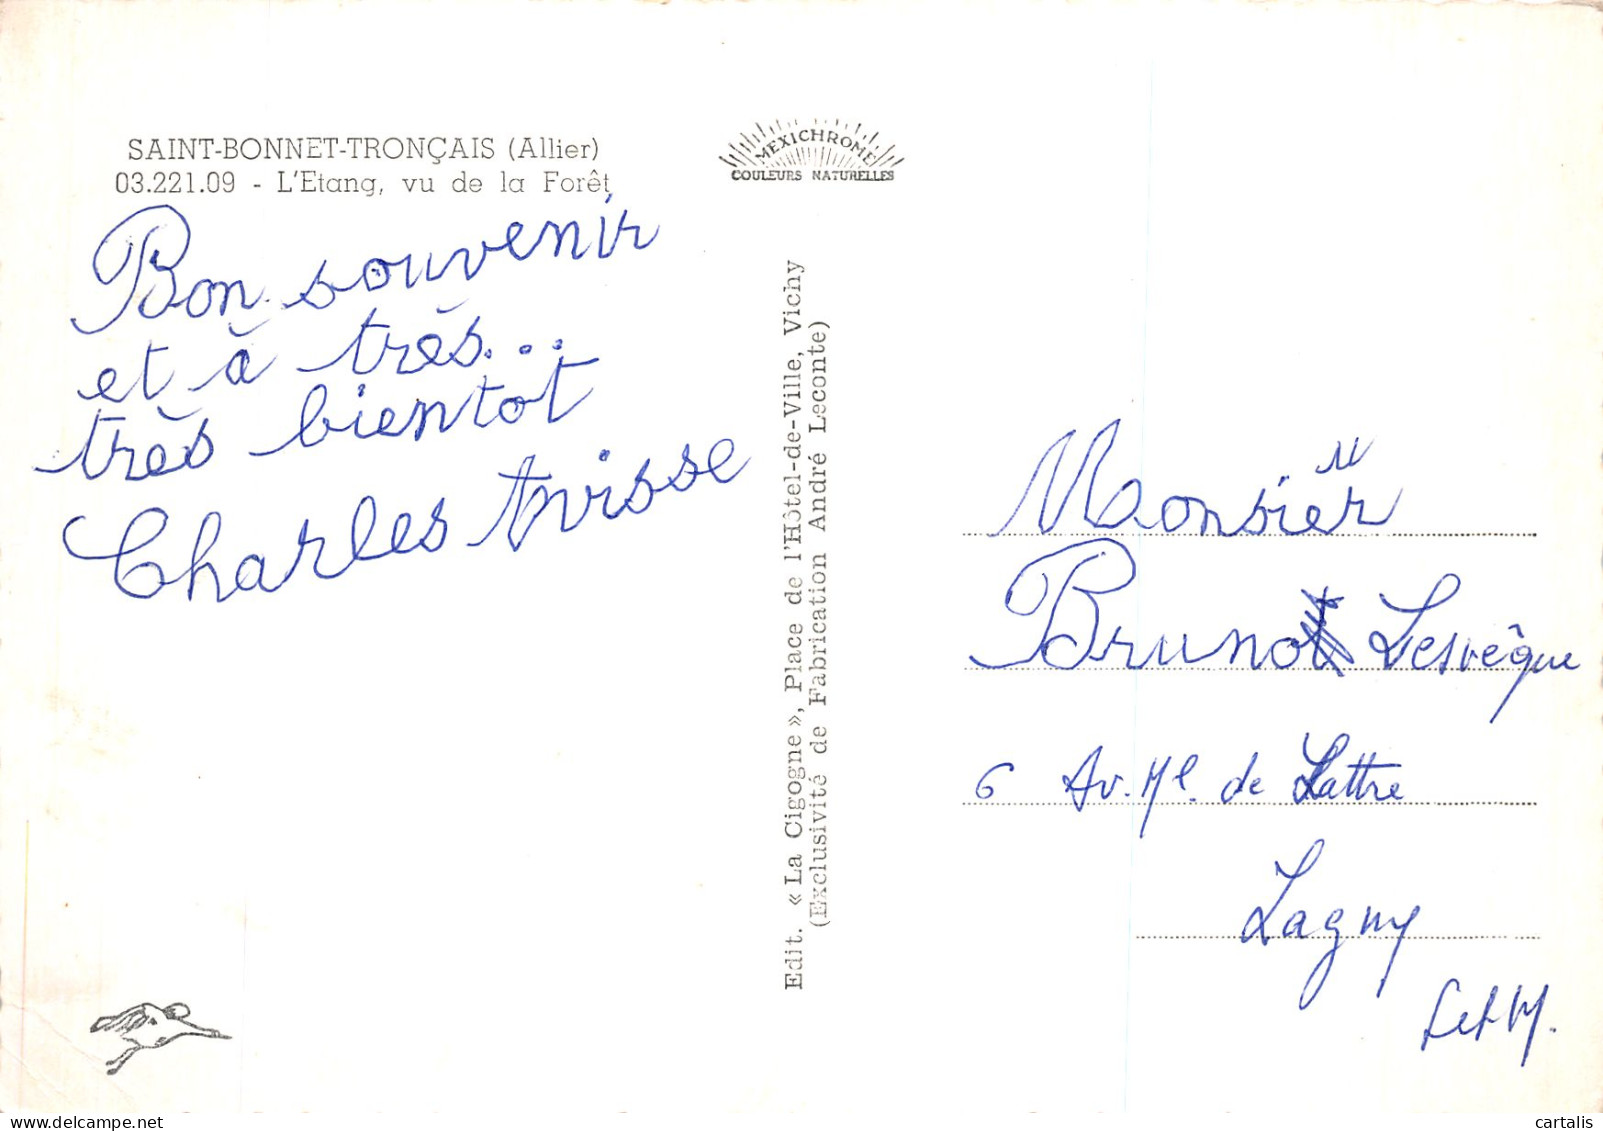 SAINT-BONNET-TRONÇAIS (Allier)
03.221.09 - L'Etang, vu de la Forêt
MEXICHROME
COULEURS NATURELLES
Bon souvenir
et à très...
très bientot
Charles Avisse
Edit. « La Cigogne », Place de l'Hôtel-de-Ville, Vichy
(Exclusivité de Fabrication André Leconte)
Monsieur
Bruno Lesvêque
6 Av. Ml. de Lattre
Lagny
S et M.
cartalis